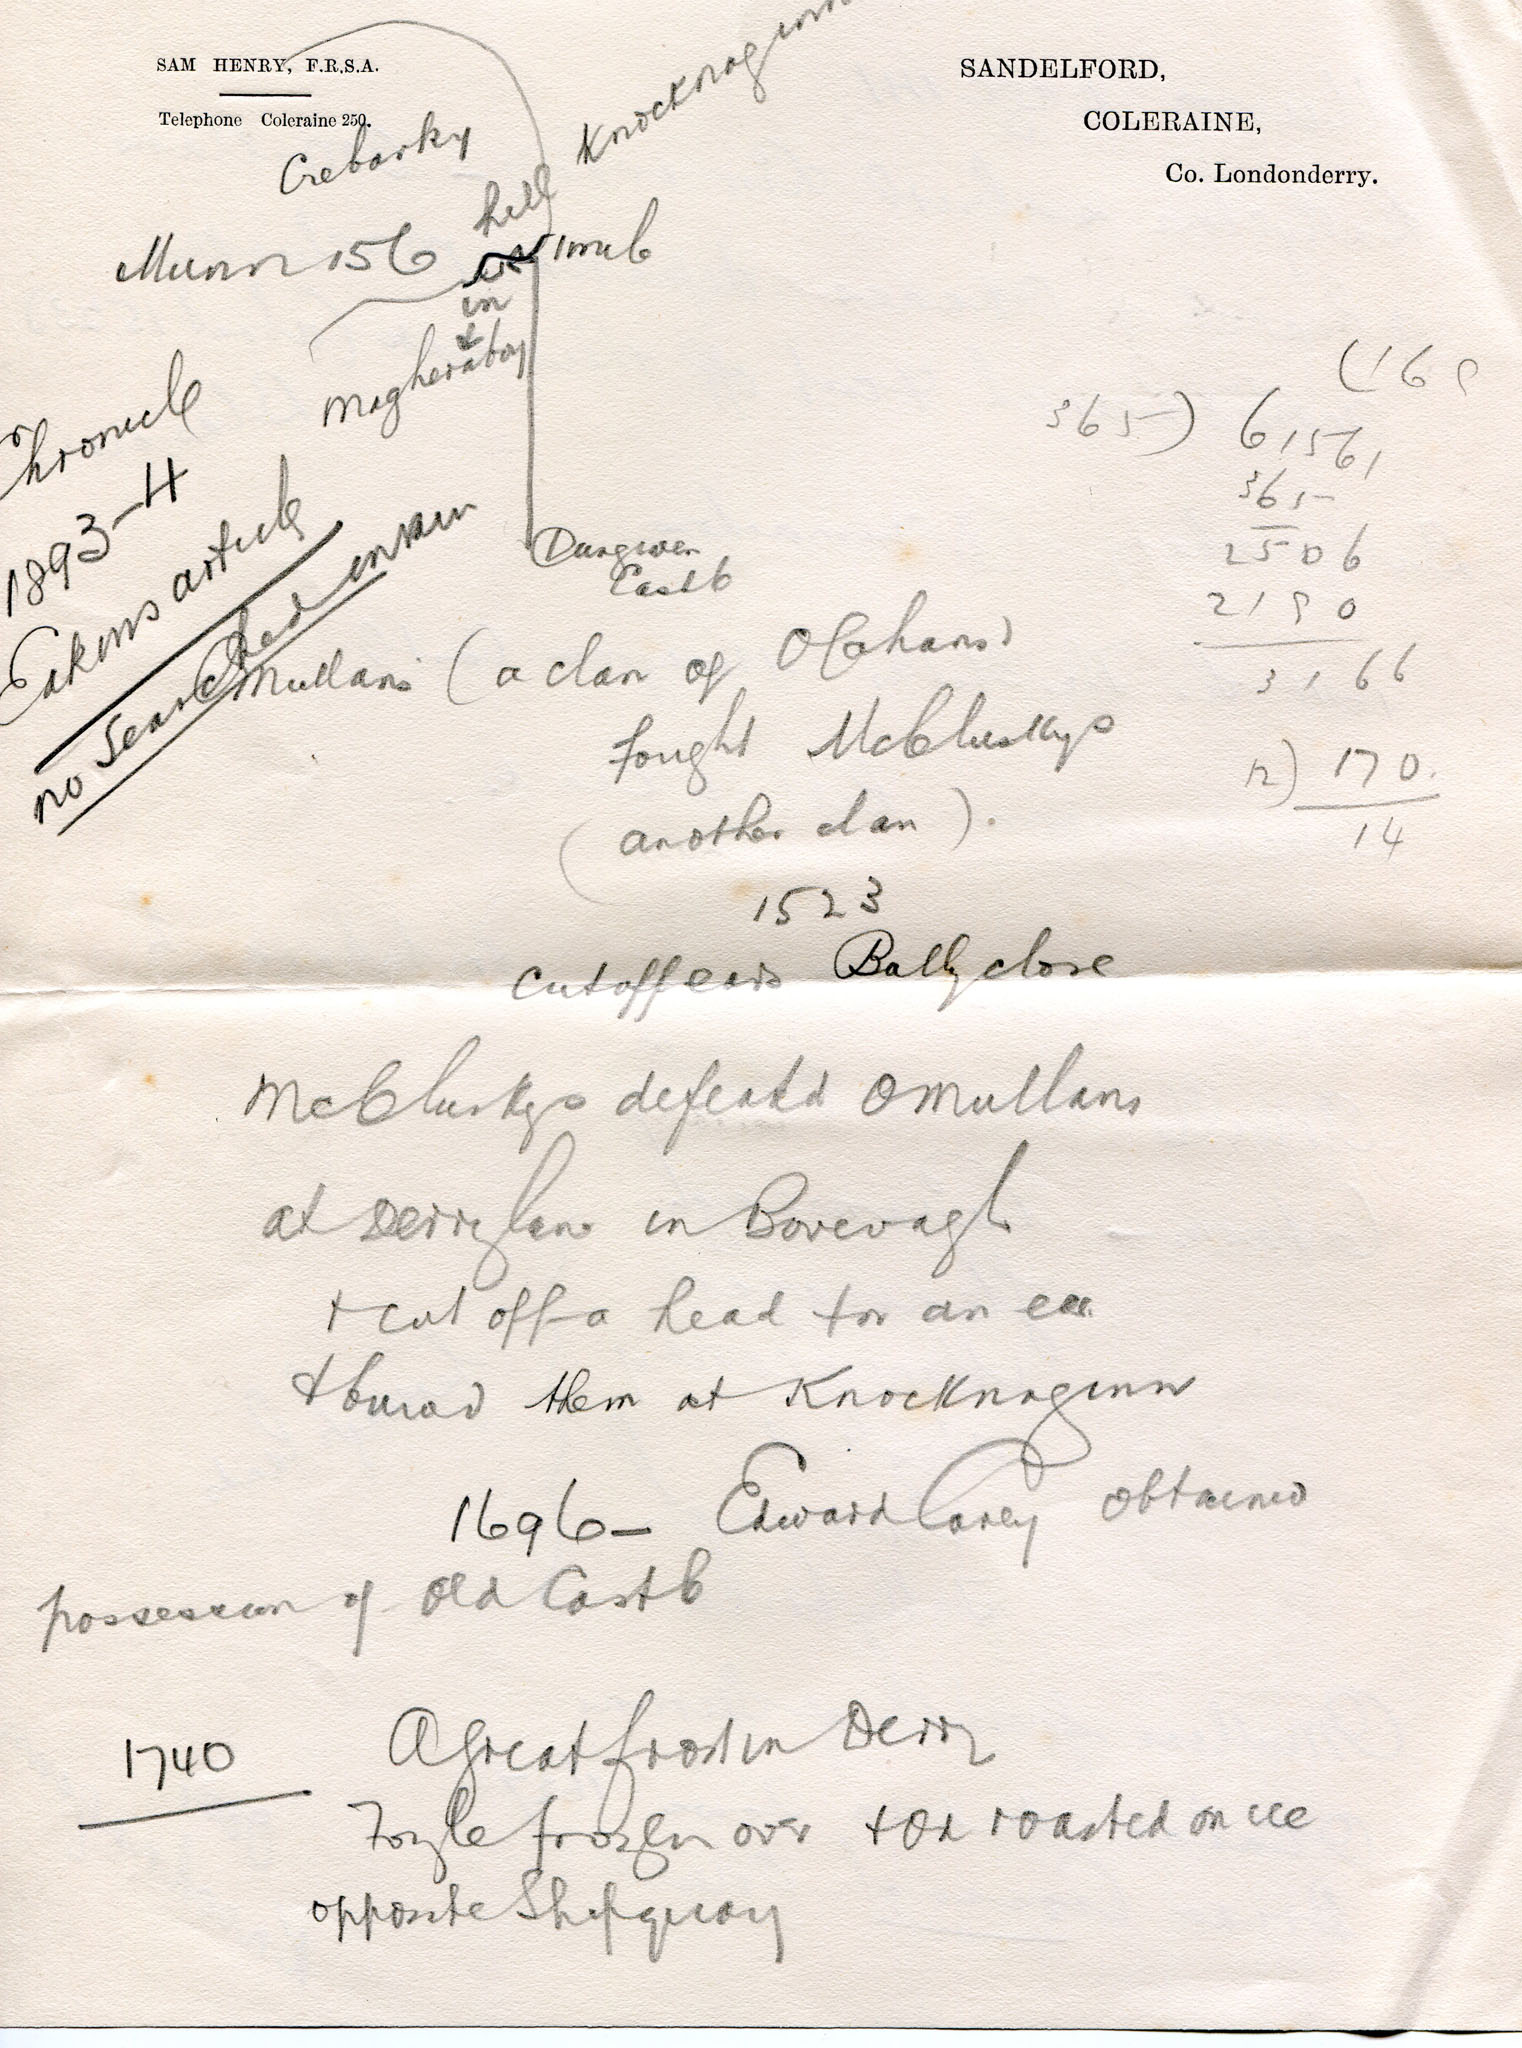 SAM HENRY, F.R.S.A.
Telephone Coleraine 250.
SANDELFORD,
COLERAINE,
Co. Londonderry.
Knocknaginn
Crebarky
hill
Munn 156
1 mile
in
&
Magheraboy
Chronicle
1893-4
Eakins article
no Searched in vain
Dungiven
Castle
(168
365) 61561
365
2506
2190
3166
12) 170.
14
Mullans (a clan of O Cahans)
Fought McCluskys
(another clan).
1523
cut off ears Ballyclose
McCluskys defeated O Mullans
at Derrylane in Borevagh
+ cut off a head for an ear
+ buried them at Knocknaginn
1696 - Edward Carey obtained
possession of Old Castle
1740 A Great frost in Derry
Foyle frozen over + Ox roasted on ice
opposite Shipquay